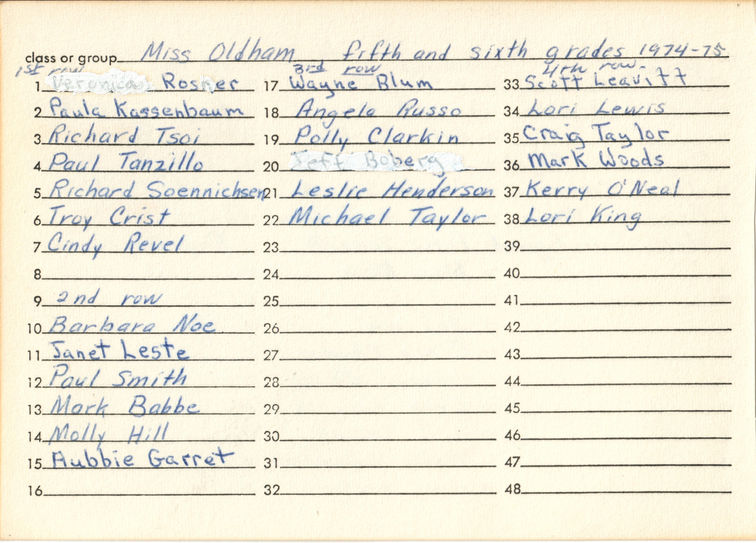 class or group Miss Oldham fifth and sixth grades 1974-75
1st row
1 Veronica Rosner
2 Paula Kassenbaum
3 Richard Tsoi
4 Paul Tanzillo
5 Richard Soennichsen
6 Troy Crist
7 Cindy Revel
8
9 2nd row
10 Barbara Noe
11 Janet Leste
12 Paul Smith
13 Mark Babbe
14 Molly Hill
15 Aubbie Garret
16
3rd row
17 Wayne Blum
18 Angela Russo
19 Polly Clarkin
20 Jeff Boberg
21 Leslie Henderson
22 Michael Taylor
23
24
25
26
27
28
29
30
31
32
4th row
33 Scott Leavitt
34 Lori Lewis
35 Craig Taylor
36 Mark Woods
37 Kerry O'Neal
38 Lori King
39
40
41
42
43
44
45
46
47
48